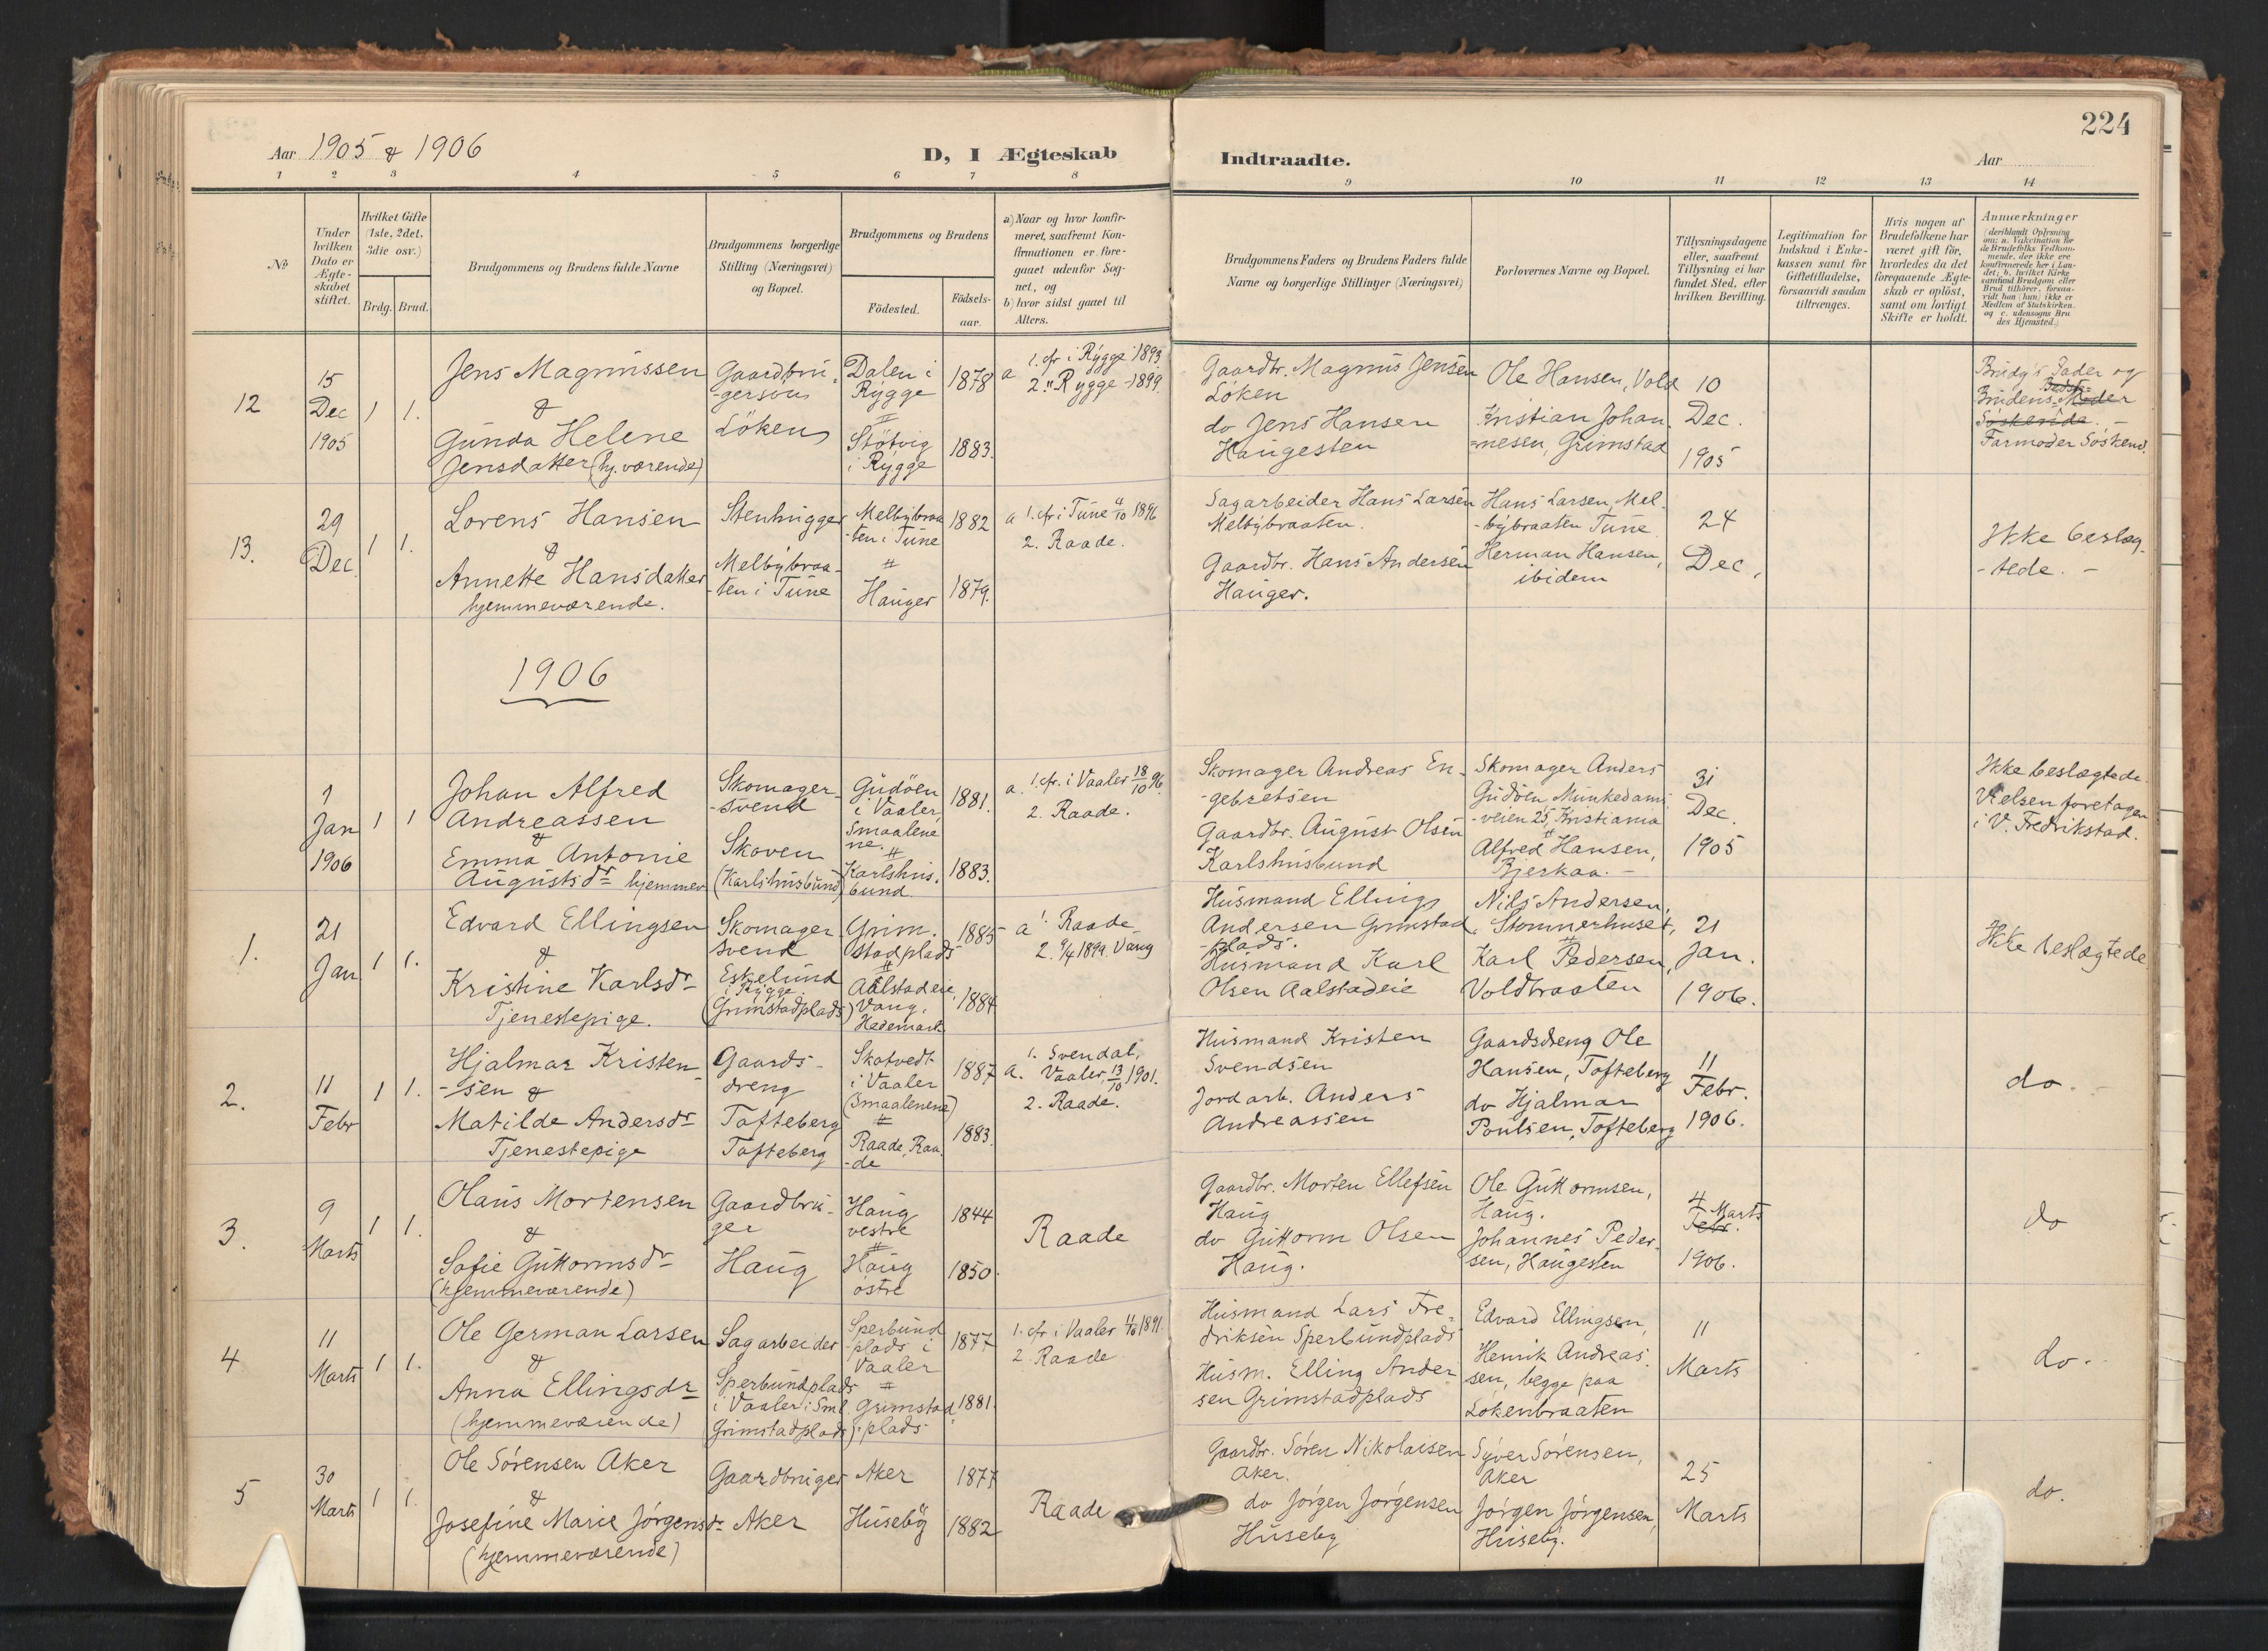 224
Aar 1905 & 1906
D, I Ægteskab
Indtraadte.
Aar
1 2 3 4 5 6 7 8
9 10 11 12 13 14
No
Under
hvilken
Dato er
Ægte-
skabet
stiftet.
Hvilket Gifte
(1ste, 2det,
3die osv.)
Brdg. Brud.
Brudgommens og Brudens fulde Navne
Brudgommens borgerlige
Stilling (Næringsvei)
og Bopæl.
Brudgommens og Brudens
Födested.
Födsels-
aar.
a) Naar og hvor konfir-
meret, saafremt Kon-
firmationen er fore-
gaaet udenfor Sog-
net, og
b) hvor sidst gaaet til
Alters.
Brudgommens Faders og Brudens Faders fulde
Navne og borgerlige Stillinger (Næringsvei)
Forlovernes Navne og Bopæl.
Tillysningsdagene
eller, saafremt
Tillysning ei har
fundet Sted, efter
hvilken Bevilling.
Legitimation for
Indskud i Enke-
kassen samt for
Giftetilladelse,
forsaavidt saadan
tiltrænges.
Hvis nogen af
Brudefolkene har
været gift før,
hvorledes da det
foregaaende Ægte-
skab er oplöst,
samt om lovligt
Skifte er holdt.
Anmærkninger
(deriblandt Oplysning
om: a. Vakcination for
de Brudefolks Vedkom-
mende, der ikke ere
konfirmerede her i Lan-
det; b. hvilket Kirke-
samfund Brudgom eller
Brud tilhörer, forsaa-
vidt han (hun) ikke er
Medlem af Statskirken.
og c. udensogns Bru-
des Hjemsted.)
12
15
Dec
1905
1 1.
Jens Magnussen
&
Gunda Helene
Jensdatter (hj. værende)
Gaardbru-
-gersön
Löken
Dalen i
Rygge
"
Støtvig
i Rygge
1878
1883.
a 1. cfr i Rygge 1893
2. " Rygge - 1899.
Gaardbr. Magnus Jensen
Löken
do Jens Hansen
Haugesten
Ole Hansen, Vold
Kristian Johan-
=nesen, Grimstad
10
Dec.
1905
Brudg's Fader og
Bedste=
Brudens Moder
Søskende. -
Farmoder Söskend.
13.
29
Dec
1 1.
Lorens Hansen
&
Annette Hansdatter
hjemmeværende.
Stenhugger
Melbybraa-
-ten i Tune
Melbybraa
-ten i Tune
"
Hauger
1882
1879.
a 1. cfr. i Tune 4/10 1896
2. Raade.
Sagarbeider Hans Larsen
Melbybraaten.
Gaardbr. Hans Andersen
Hauger.
Hans Larsen, Mel-
-bybraaten Tune
Herman Hansen,
ibidem
24
Dec.
Ikke beslæg-
-tede. -
1906
1
Jan
1906
1 1
Johan Alfred
Andreassen
&
Emma Antonie
Augustsdr hjemmev
Skomager-
-svend
Skoven
(Karlshusbund)
Gudöen
i Vaaler,
Smaalene
ne.
"
Karlshus-
bund
1881.
1883.
a. 1. cfr. i Vaaler 18/10 96.
2. Raade.
Skomager Andreas En-
-gebretsen
Gaardbr. August Olsen
Karlshusbund
Skomager Anders
Gudöen, Munkedams
-veien 25, Kristiania
"
Alfred Hansen,
Bjerkaa. -
31
Dec.
1905
Ikke beslægtede.
Vielsen foretagen
i V. Fredrikstad.
1.
21
Jan
1 1.
Edvard Ellingsen
&
Kristine Karlsdr
Tjenestepige.
Skomager-
svend
Eskelund
i Rygge
(Grimstadplads)
Grim-
stadplads
"
Aalstadeie
Vang,
Hedemark
1885
1884
a 1. Raade
2. 9/4 1899. Vang
Husmand Elling
Andersen Grimstad
-plads.
Husmand Karl
Olsen Aalstadeie
Nils Andersen,
Stommerhuset,
"
Karl Pedersen,
Voldbraaten
21
Jan.
1906.
Ikke beslægtede
2.
11
Febr
1 1.
Hjalmar Kristen
-sen &
Matilde Andersdr
Tjenestepige
Gaards-
dreng
Tofteberg
Tofteberg
Skatvedt
i Vaaler
(Smaalenene)
"
Raade, Raa-
-de
1887
1883.
a. 1. Svendal,
Vaaler, 13/10 1901.
2. Raade.
Husmand Kristen
Svendsen
Jordarb. Anders
Andreassen
Gaardsdreng Ole
Hansen, Tofteberg
do Hjalmar
Poulsen, Tofteberg
11
Febr.
1906.
do. -
3.
9
Marts
1 1.
Olaus Mortensen
&
Sofie Guttormsdr
(hjemmeværende)
Gaardbru-
ger
Haug
Haug
vestre
"
Haug
östre
1844
1850.
Raade
Gaardbr. Morten Ellefsen
Haug
do Guttorm Olsen
Haug.
Ole Guttormsen,
Haug.
Johannes Peder-
sen, Haugesten
4
Marts
Febr.
1906.
do
4
11
Marts
1 1.
Ole German Larsen
&
Anna Ellingsdr
(hjemmeværende)
Sagarbeider
Sperbundplads
i Vaaler i Sml.
(Grimstadplads)
Sperbund
-plads i
Vaaler
"
Grimstad
-plads
1877
1881.
1. cfr i Vaaler 4/10 1891.
2. Raade
Husmand Lars Fre-
driksen Sperbundplads
Husm. Elling Ander
sen Grimstadplads
Edvard Ellingsen,
Henrik Andreas-
sen, begge paa
Lökenbraaten
11
Marts
do. -
5
30
Marts
1 1.
Ole Sörensen Aker
&
Josefine Marie Jörgensdr
(hjemmeværende)
Gaardbruger
Aker
Aker
Huseby
1877
1882
Raade
Gaardbr. Sören Nikolaisen
Aker.
do Jörgen Jörgensen
Huseby
Syver Sörensen,
Aker
Jörgen Jörgensen,
Huseby.
25
Marts
do.